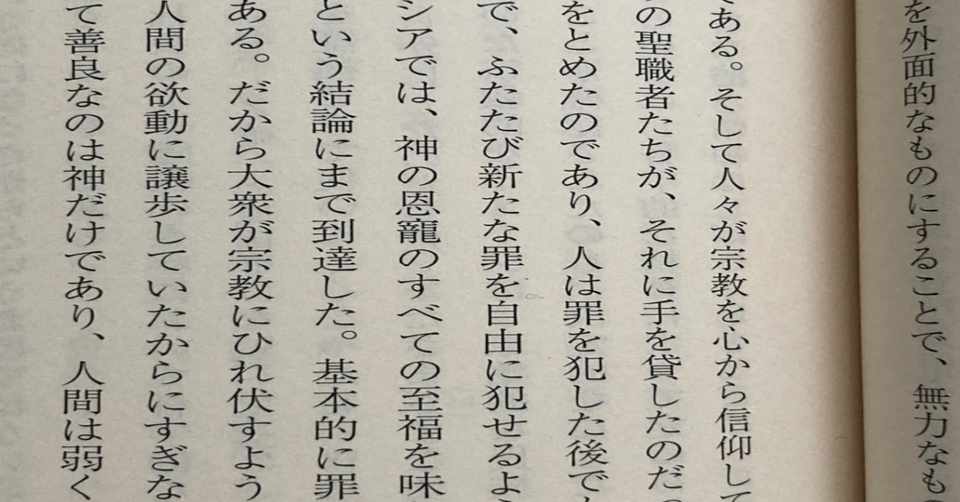 を外面的なものにすることで、無力なも
である。そして人々が宗教を心から信仰して
の聖職者たちが、それに手を貸したのだ。
をとめたのであり、人は罪を犯した後で
で、ふたたび新たな罪を自由に犯せるよ
シアでは、神の恩寵のすべての至福を味
という結論にまで到達した。基本的に罪
ある。だから大衆が宗教にひれ伏すよう
人間の欲動に譲歩していたからにすぎな
て善良なのは神だけであり、人間は弱く